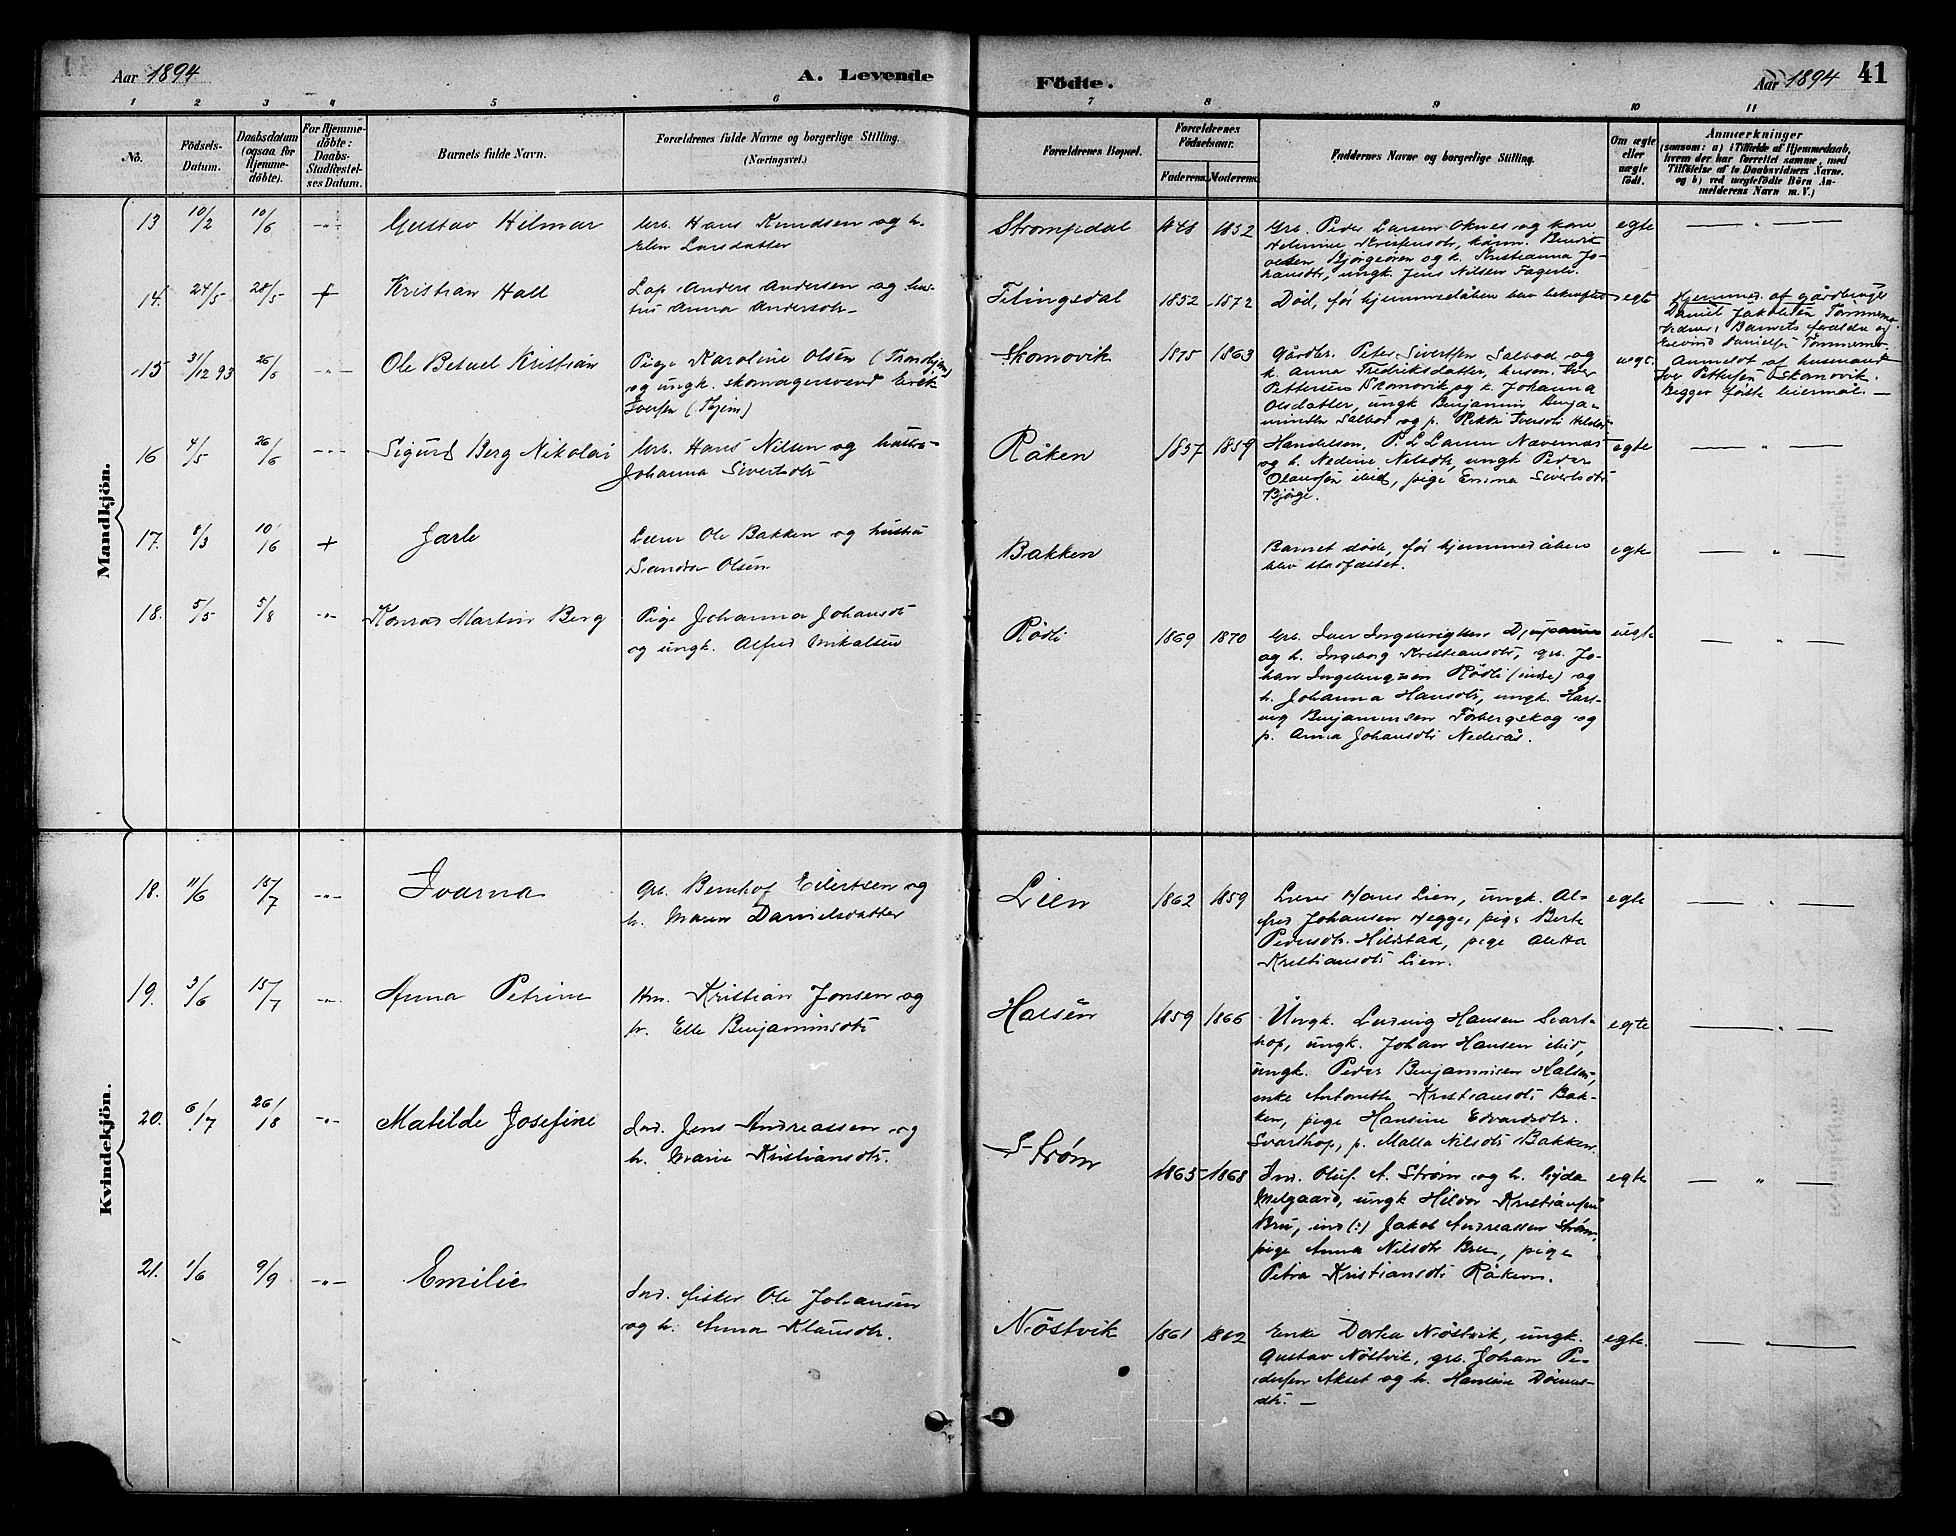 Aar 1894
A. Levende
Födte.
Aar 1894
41
1 2 3 4 5 6 7 8 9 10 11
No.
Födsels-
Datum.
Daabsdatum
(ogsaa for
Hjemme-
döbte).
For Hjemme-
döbte:
Daabs-
Stadfæstel-
ses Datum.
Barnets fulde Navn.
Forældrenes fulde Navne og borgerlige Stilling.
(Næringsvei.)
Forældrenes Bopæl.
Forældrenes
Födselsaar.
Faderens. Moderens.
Faddernes Navne og borgerlige Stilling.
Om ægte
eller
uægte
födt.
Anmærkninger
(saasom: a) i Tilfælde af Hjemmedaab,
hvem der har forrettet samme, med
Tilföielse af to Daabsvidners Navne,
og b) ved uægtefödte Börn An-
melderens Navn m. V.)
Mandkjön.
13 10/2 10/6 -"- Gustav Hilmar
Hans Knudsen og h.
Elen Larsdatter
Strompdal
1848 1852
Grb. Peder Larsen Oknes og kone
olsen Bjørgeøren og h. Kristianna Jo-
hansdtr, ungk. Jens Nilsen Fagerli.
egte
— " —
14. 24/5 28/5 + Kristian Hall
Lap Anders Andersen og hu-
stru Anna Andersdtr
Tilingsdal
1852 1872
Død, før hjemmedåben blev bekræftet
egte
Hjemmed. af gårdbruger
Daniel Jakobsen Tømmermo
15 31/12 93 26/6 -"- Ole Betuel Kristian
Pige Karoline Olsen (Trondhjem)
og ungk. skomagersvend Erik
Iversen (Hjem)
Skomovik
1875 1863
Gårdbr. Peter Sivertsen Salbod og
k. Anna Fredriksdatter, husm. Iver
Pettersen Skomovik og k. Johanna
Olsdatter, ungk Benjamin Benja-
minsen Salbod og p.
uegte
Anmeldt af husmand
Iver Pettersen Skomovik.
Begges første leiermål. —
16 4/5 26/6 -"- Sigurd Berg Nikolai
Hans Nilsen og hustru
Johanna Sivertsdtr
Råken
1857 1859
Handelsm. P. L. Larsen Nævernes
og h. Nedine Nilsdtr, ungk Peder
Olaussen ibid, pige Emma Sivertsdtr
Bjørge.
egte
— " —
17. 8/3 10/6 + Jarle
Lærer Ole Bakken og hustru
Sandra Olsen
Bakken
Barnet døde, før hjemmedåben
blev stadfæstet.
egte
— " —
18. 5/5 5/8 -"- Konrad Martin Berg
Pige Johanna Johansdtr
og ungk. Alfred Mikalsen
Rødli
1869 1870
Grb. Iver Ingebrigtsen
og h. Ingeborg Kristiansdtr, gr. Jo-
han Ingebrigtsen Rødli (indre) og
h. Johanna Hansdtr, ungk. Hart-
vig Benjaminsen Forbergskog og
p. Anna Johansdtr Nederås.
uegte
— " —
Kvindekjön.
18. 11/6 15/7 -"- Ivarna
Grb. Bernhof Eilertsen og
h. Maren Danielsdatter
Lien
1862 1859
Lærer Hans Lien, ungk. Al-
fred Johansen Hegge, pige Berte
Pedersdtr. Hildstad, pige Aletta
Kristiansdtr Lien.
egte
— " —
19. 3/6 15/7 -"- Anna Petrine
Hm. Kristian Jonsen og
h. Elle Benjaminsdtr
Halsen
1859 1866
Ungk. Ludvig Hansen Svart-
hop, ungk. Johan Hansen ibid,
ungk. Peder Benjaminsen Halsen,
enke Antonette Kristiansdtr Bak-
ken, pige Hansine Edvardsdtr.
Svarthop, p. Malla Nilsdtr Bakken.
egte
— " —
20. 6/7 26/8 -"- Matilde Josefine
Ind. Jens Andreassen og
h. Marie Kristiansdtr.
Strøm
1865 1868
Ind. Oluf. A. Strøm og h. Gyda
Melgaard, ungk Hildor Kristiansen
Bru, ind (:) Jakob Andreassen Strøm,
pige Anna Nilsdtr Bru, pige
Petra Kristiansdtr Råken.
egte
— " —
21. 1/6 9/9 -"- Emilie
Ind. fisker Ole Johansen
og h. Anna Klausdtr.
Nøstvik
1861 1862
Enke Dorka Nøstvik, ungk.
Gustav Nøstvik, grb. Johan Pe-
dersen Akset og h. Hansine
dtr. —
egte.
— " —